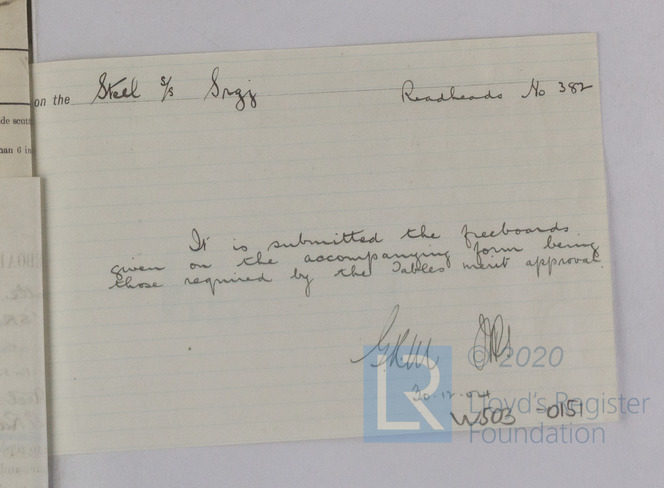 on the Steel s/s Readheads No 382
de scut
han 6 in
It is submitted the freeboards
given on the accompanying form being
those required by the Tables merit approval.
© 2020
30.12.04
Lloyd's Register
W503-0151
Foundation
LR